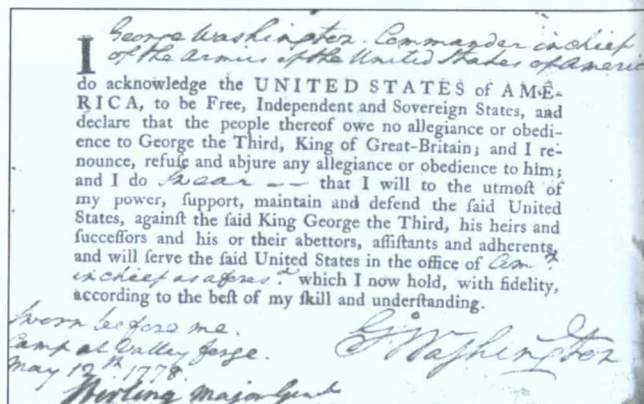 I George Washington Commander in chief
of the Armies of the United States of America
do acknowledge the UNITED STATES of AME-
RICA, to be Free, Independent and Sovereign States, and
declare that the people thereof owe no allegiance or obedi-
ence to George the Third, King of Great-Britain; and I re-
nounce, refuſe and abjure any allegiance or obedience to him;
and I do Swear —— that I will to the utmoſt of
my power, ſupport, maintain and defend the ſaid United
States, againſt the ſaid King George the Third, his heirs and
ſucceſſors and his or their abettors, aſſiſtants and adherents,
and will ſerve the ſaid United States in the office of Comr.
in chief as afores.d which I now hold, with fidelity,
according to the beſt of my ſkill and underſtanding.
Sworn before me.
Camp at Valley forge.
May 12th. 1778.
Sterling Major Genl
G Washington